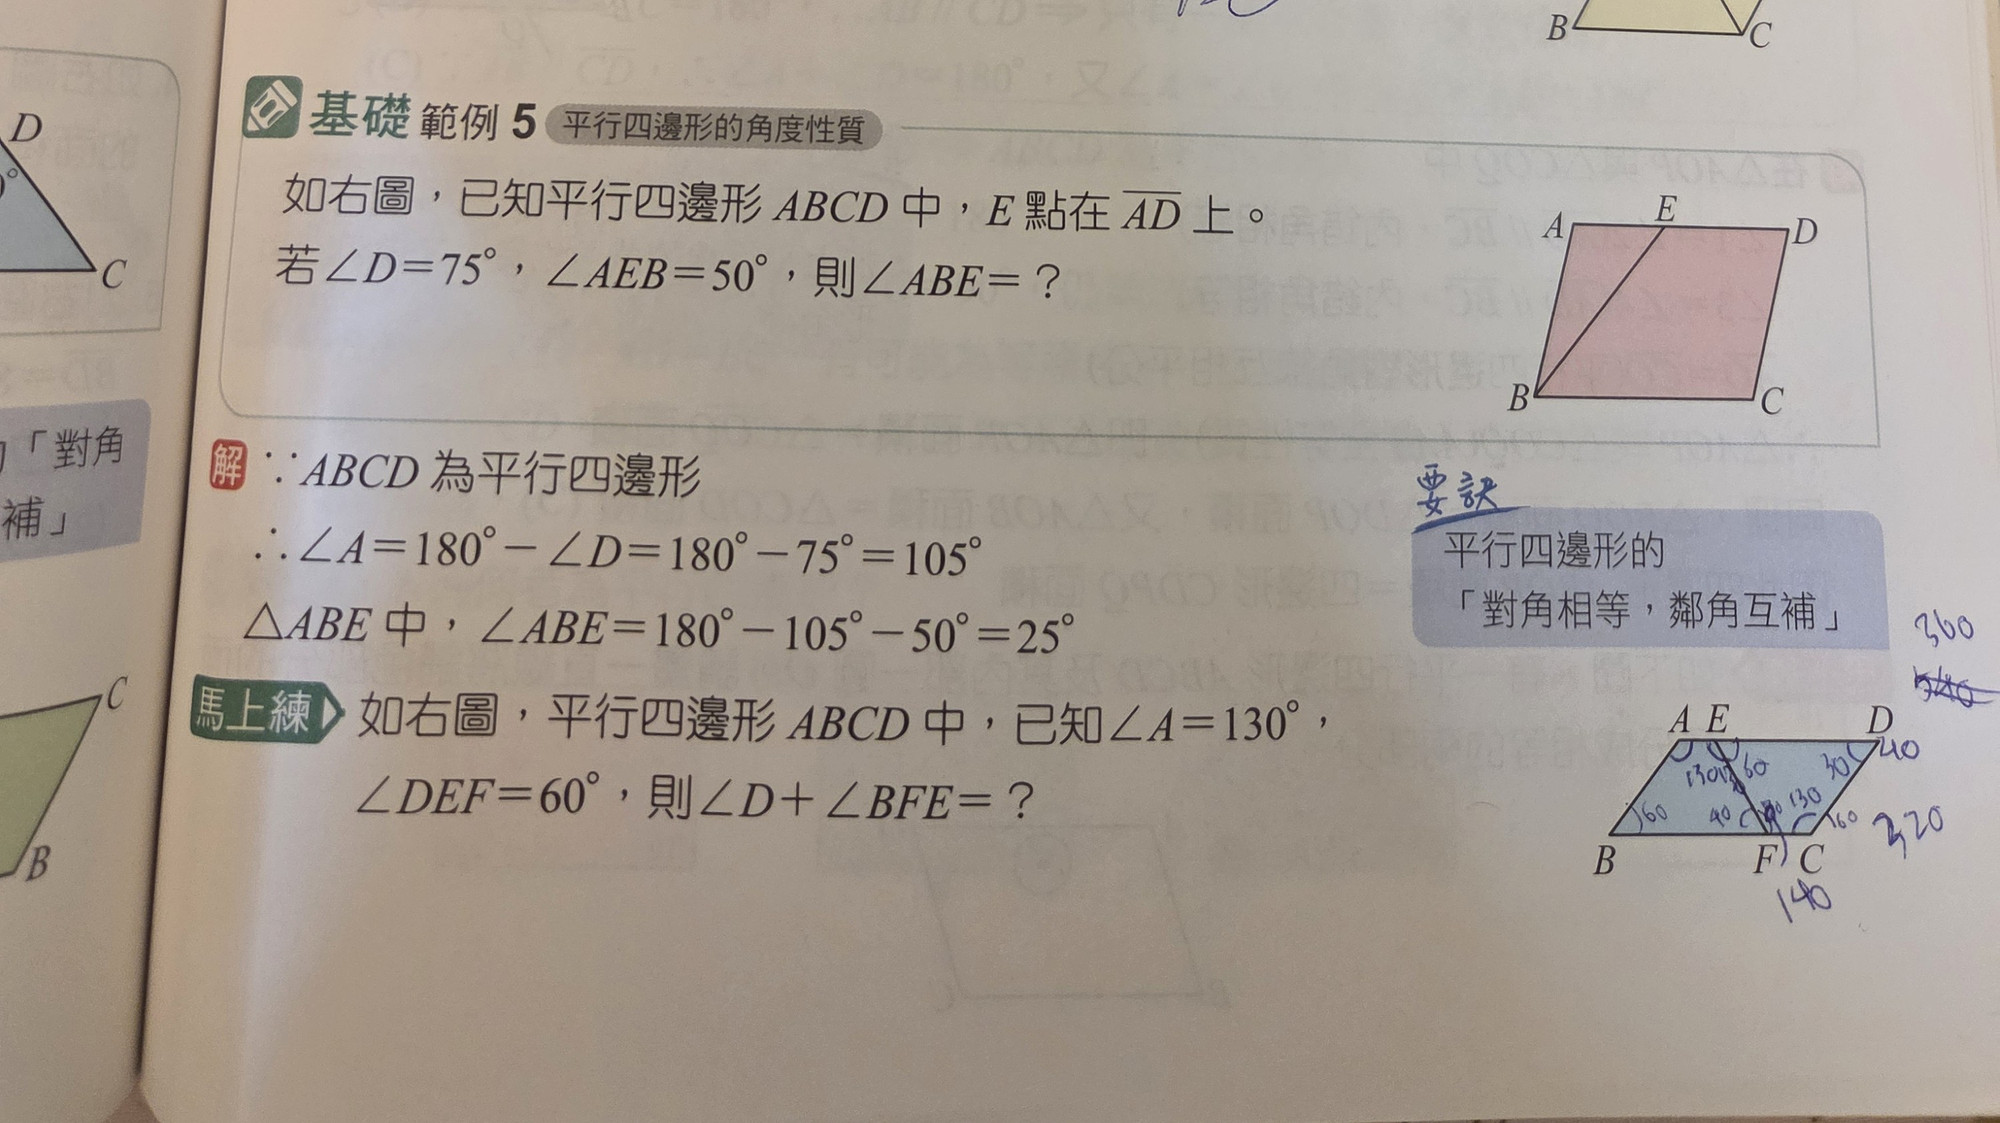 B
C
基礎 範例 5 平行四邊形的角度性質
如右圖，已知平行四邊形 ABCD 中，E 點在 AD 上。
若∠D＝75°，∠AEB＝50°，則∠ABE＝？
A
E
D
B
C
解 ∵ABCD 為平行四邊形
∴∠A＝180°－∠D＝180°－75°＝105°
△ABE 中，∠ABE＝180°－105°－50°＝25°
要訣
平行四邊形的
「對角相等，鄰角互補」
馬上練 如右圖，平行四邊形 ABCD 中，已知∠A＝130°，
∠DEF＝60°，則∠D＋∠BFE＝？
360
A E D
130 60 30 40
60 40 130 60
320
B F C
140
D
C
「對角
補」
C
B